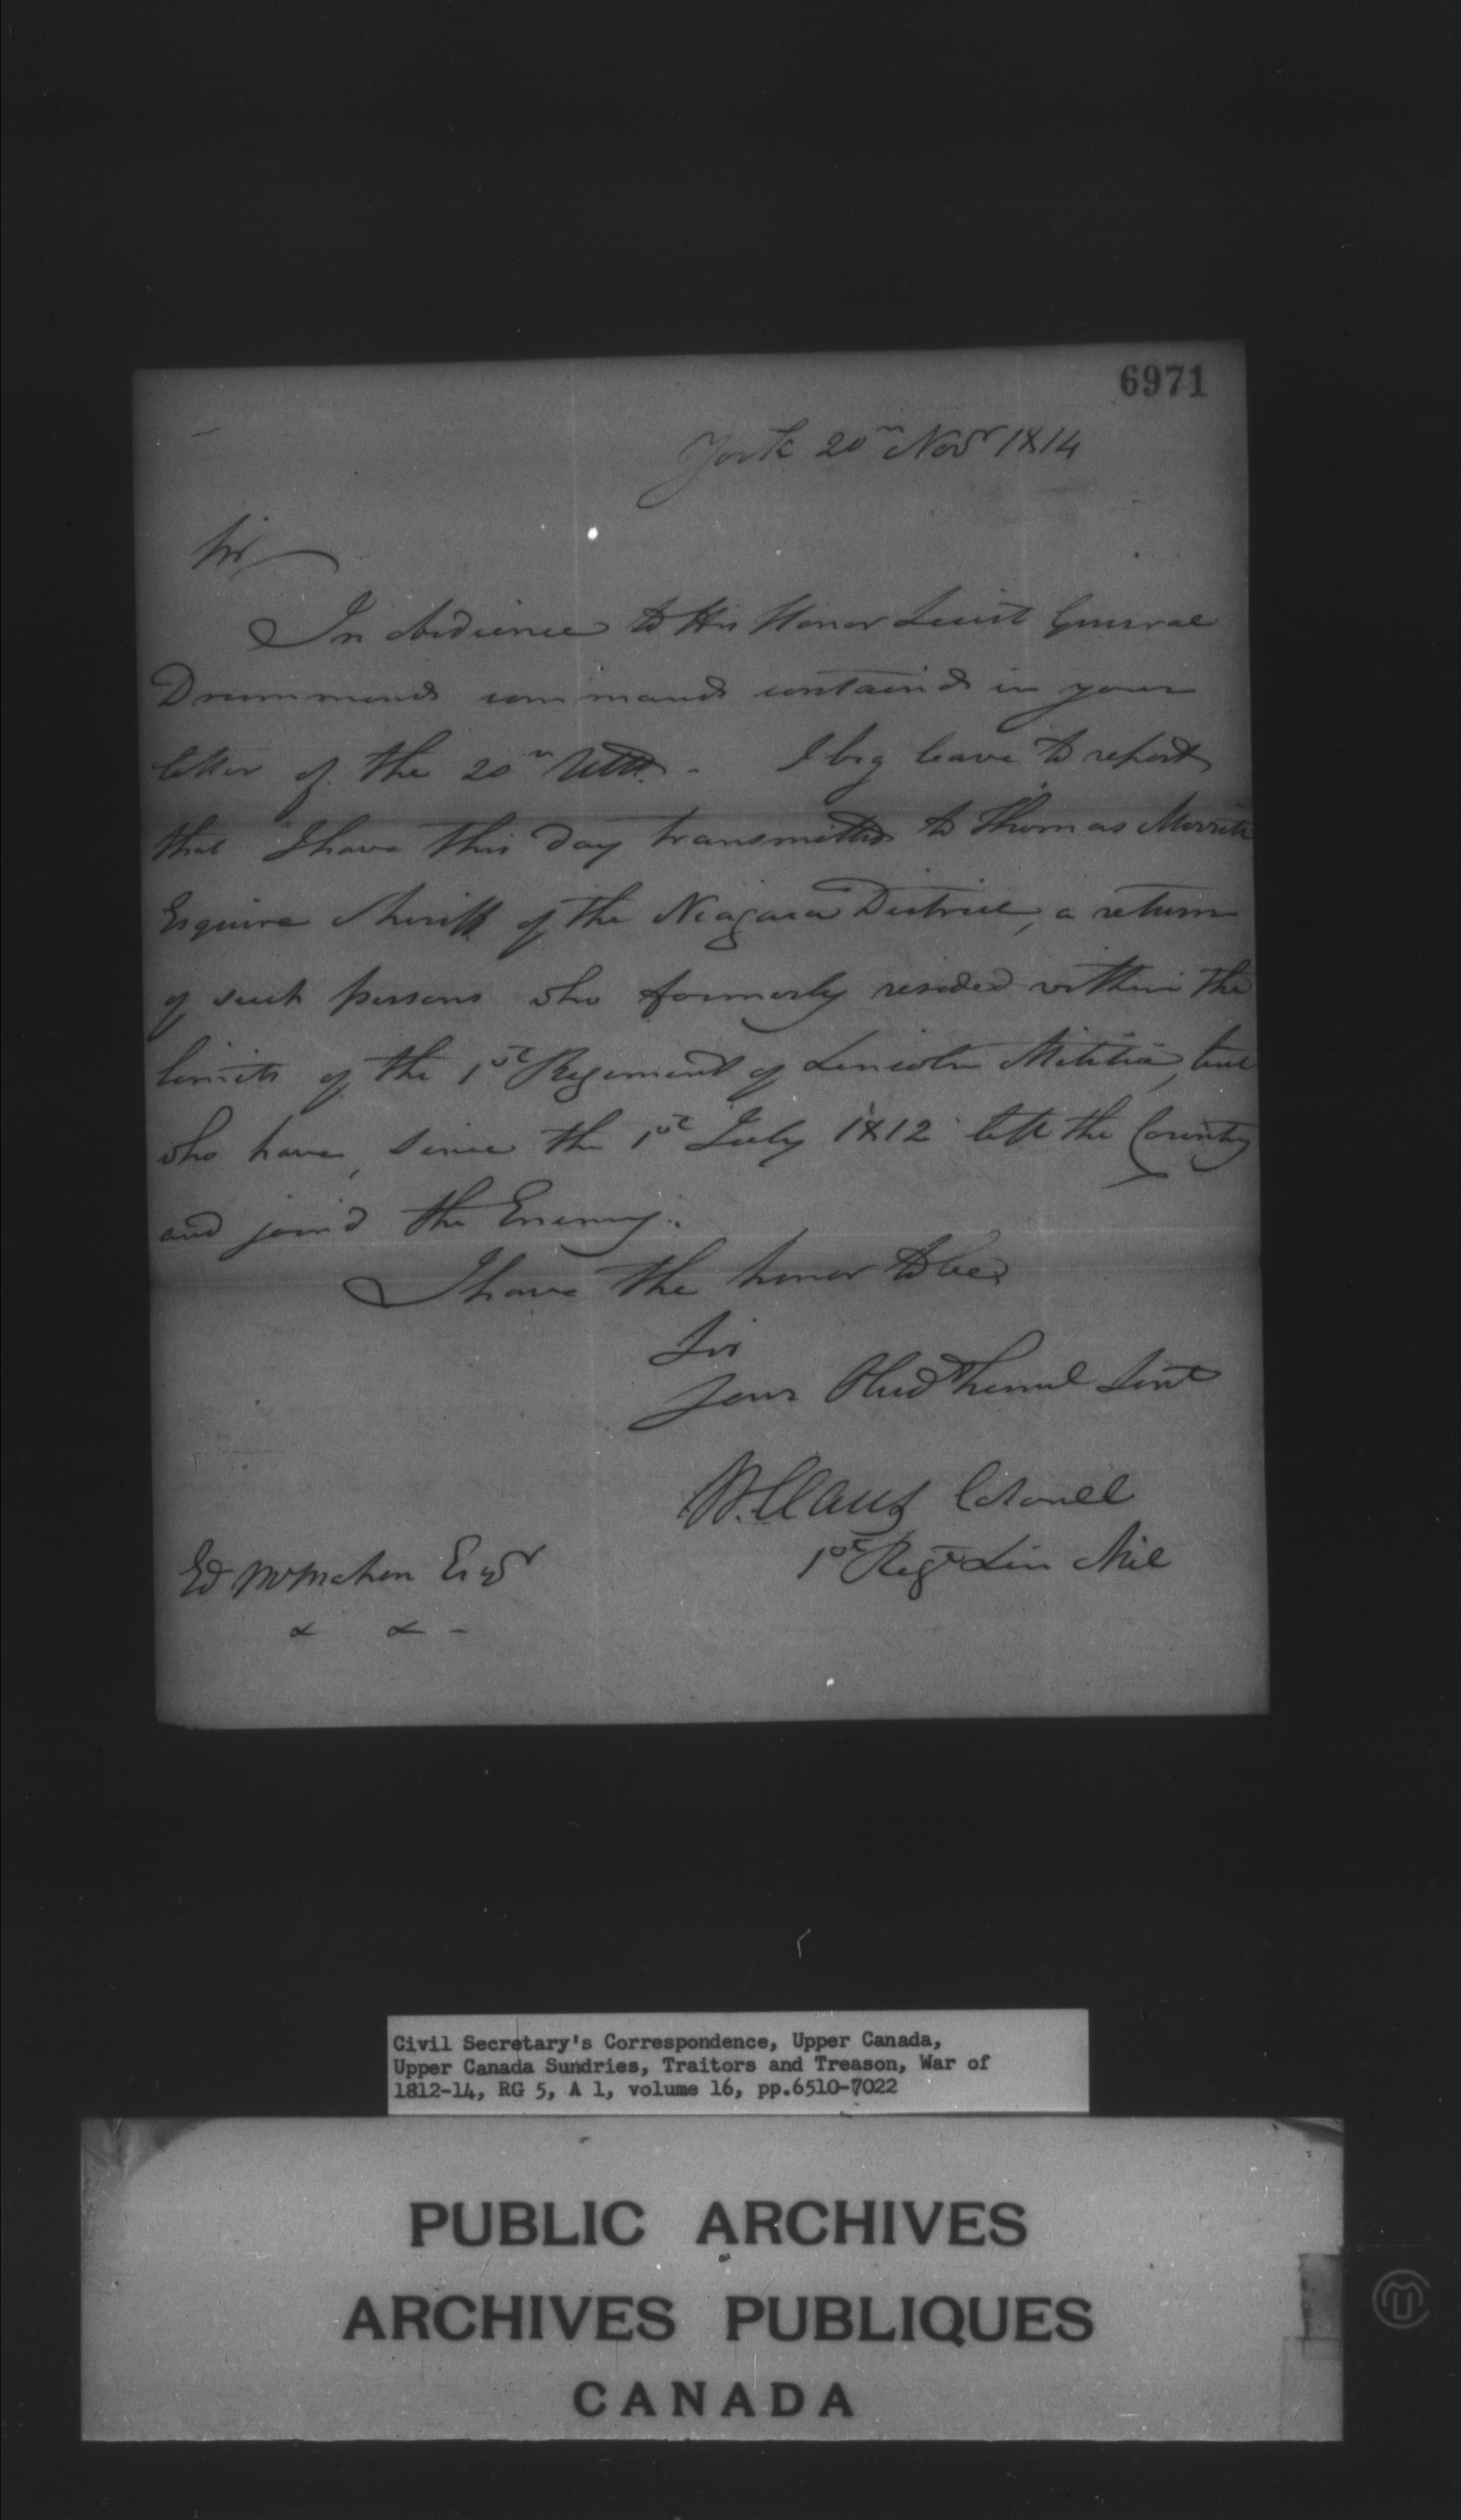 6971
York 20th Novr 1814
Sir
In Obedience to His Honor Lieut General
Drummonds commands contain'd in your
letter of the 20th Ulto. - I beg leave to report
that I have this day transmitted to Thomas Merritt
Esquire Sheriff of the Niagara District, a return
of such persons who formerly resided within the
limits of the 1st Regiment of Lincoln Militia, but
who have, since the 1st July 1812 left the Country
and join'd the Enemy.
I have the honor to be
Sir
Your Obed humbl Servt
W. Claus Colonell
1st Regt Lin Mil
Ed McMahon Esqr
& & -
Civil Secretary's Correspondence, Upper Canada,
Upper Canada Sundries, Traitors and Treason, War of
1812-14, RG 5, A 1, volume 16, pp.6510-7022
PUBLIC ARCHIVES
ARCHIVES PUBLIQUES
CANADA